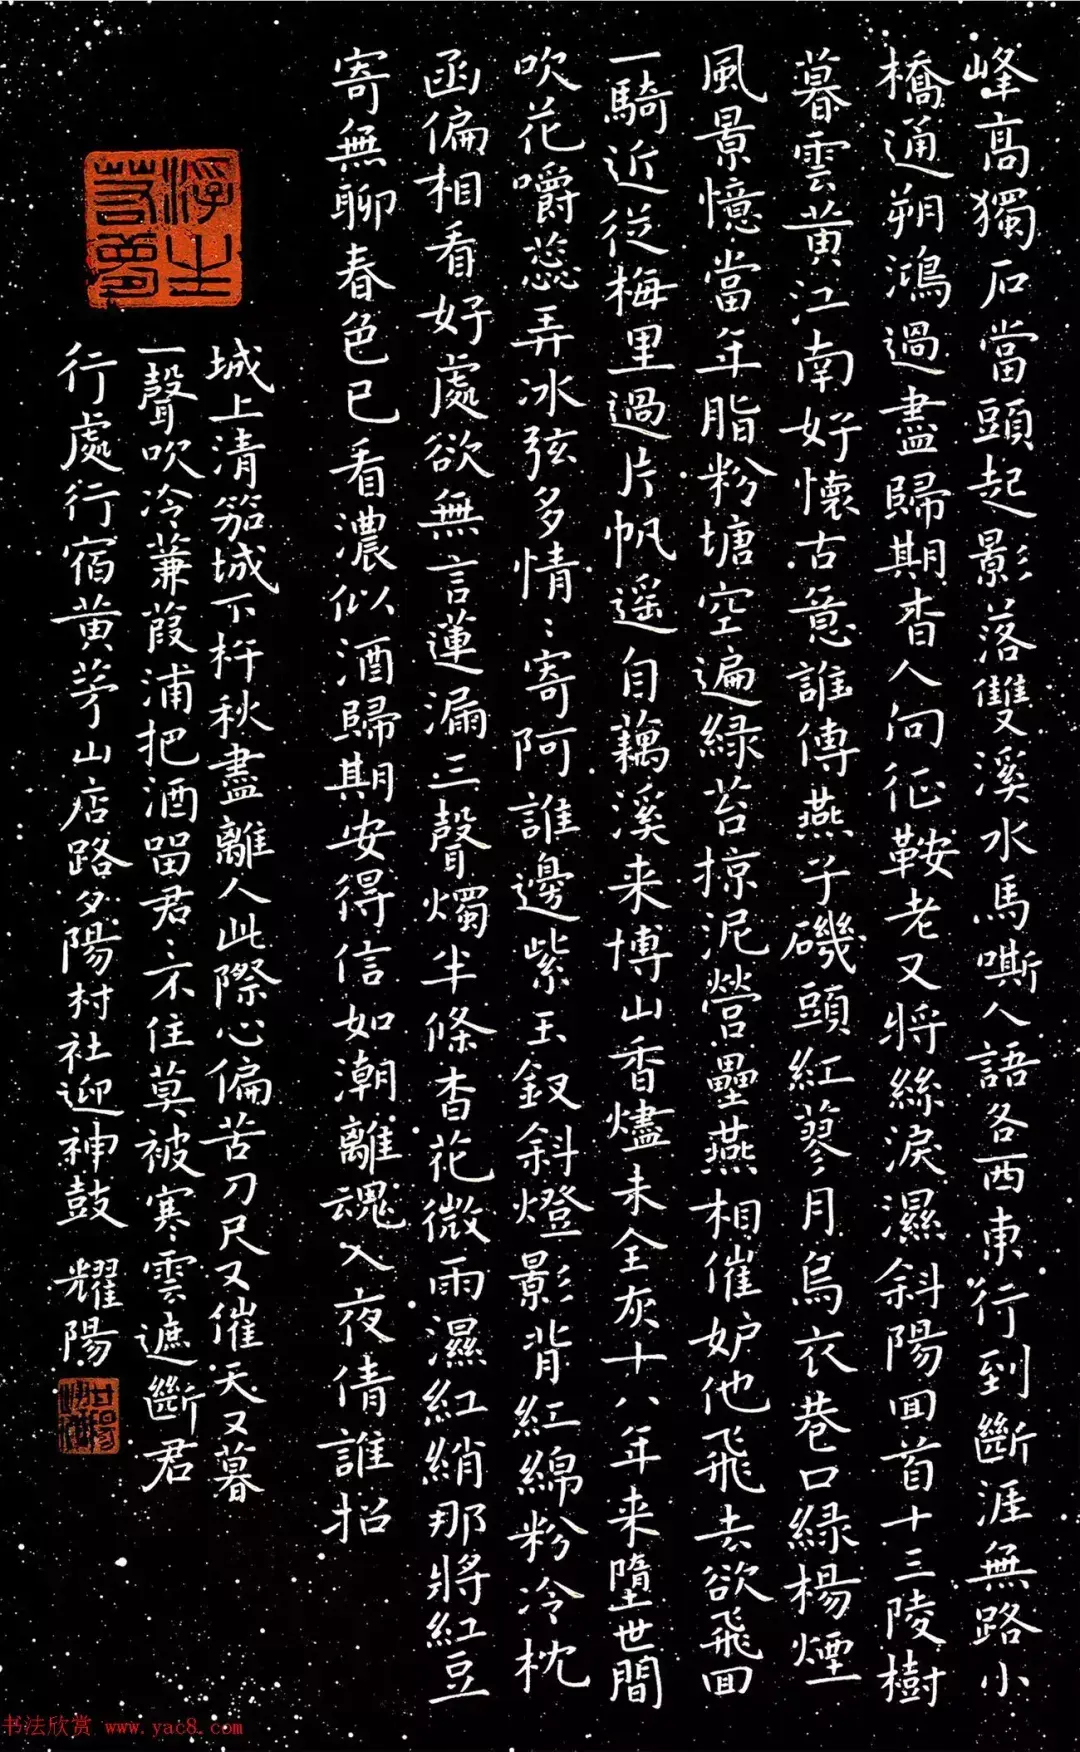 峰高獨石當頭起影落雙溪水馬嘶人語各西東行到斷涯無路小
橋通朔鴻過盡歸期杳人向征鞍老又將絲淚濕斜陽回首十三陵樹
暮雲黄江南好懷古意誰傳燕子磯頭紅蓼月烏衣巷口緑楊煙
風景憶當年脂粉塘空遍緑苔掠泥營壘燕相催妒他飛去欲飛回
一騎近從梅里過片帆遥自藕溪来博山香燼未全灰十八年来墮世間
吹花嚼蕊弄冰弦多情:寄阿誰邊紫玉釵斜燈影背紅綿粉冷枕
函偏相看好處欲無言蓮漏三聲燭半條杏花微雨濕紅綃那將紅豆
寄無聊春色已看濃似酒歸期安得信如潮離魂入夜倩誰招
浮生若夢
城上清笳城下杵秋盡離人此際心偏苦刀尺又催天又暮
一聲吹冷蒹葭浦把酒留君:不住莫被寒雲遮斷君
行處行宿黄茅山店路夕陽村社迎神鼓 耀陽
书法欣赏 www.yac8.com